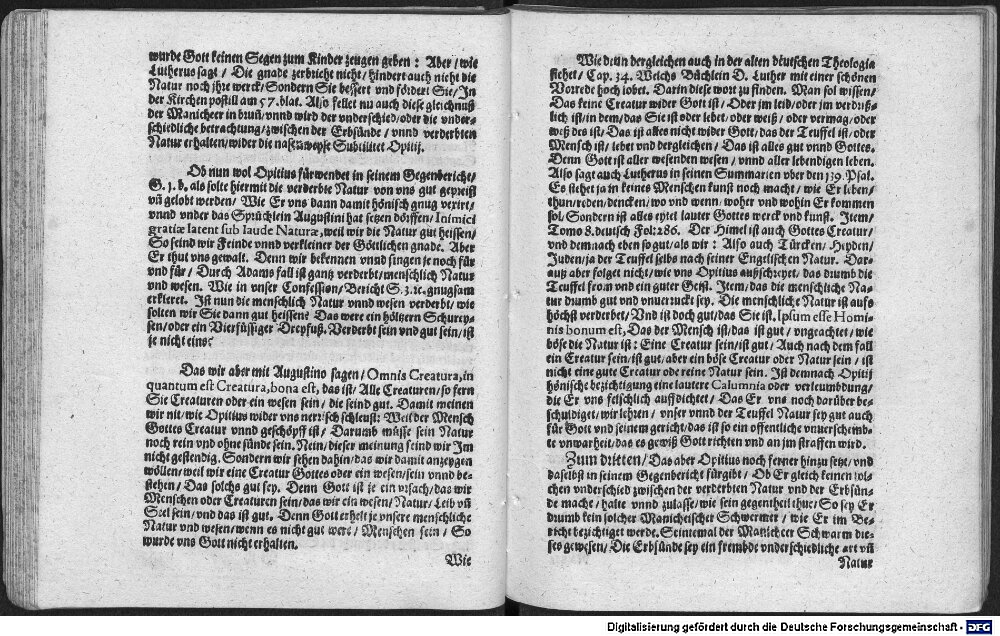 wurde Gott keinen Segen zum Kinder zeugen geben : Aber / wie
Lutherus sagt / Die gnade zerbricht nicht / hindert auch nicht die
Natur noch jhre werck / Sondern Sie bessert vnd fördert Sie / In
der Kirchen postill am 57. blat. Also fellet nu auch diese gleichnuß
der Manicheer in brun / vnnd wird der vnderschied / oder die vnder-
schiedliche betrachtung / zwischen der Erbsünde / vnnd verderbten
Natur erhalten / wider die naseweyse Subtilitet Opitij.
Ob nun wol Opitius fürwendet in seinem Gegenbericht /
G. j. b. als solte hiermit die verderbte Natur von vns gut gepreißt
vñ gelobt werden / Wie Er vns dann damit hönisch gnug vexirt /
vnnd vnder das Sprüchlein Augustini hat setzen dörffen / Inimici
gratiæ latent sub laude Naturæ, weil wir die Natur gut heissen /
So seind wir Feinde vnnd verkleiner der Göttlichen gnade. Aber
Er thut vns gewalt. Denn wir bekennen vnnd singen je noch für
vnd für / Durch Adams fall ist gantz verderbt / menschlich Natur
vnd wesen. Wie in vnser Confession / Bericht S. 3. ic. gnugsam
erkleret. Ist nun die menschlich Natur vnnd wesen verderbt / wie
solten wir Sie dann gut heissen? Das were ein höltzern Schurey-
sen / oder ein Vierfüssiger Dreyfuß. Verderbt sein vnd gut sein / ist
je nicht eins?
Das wir aber mit Augustino sagen / Omnis Creatura, in
quantum est Creatura, bona est, das ist / Alle Creaturen / so fern
Sie Creaturen oder ein wesen sein / die seind gut. Damit meinen
wir nit / wie Opitius wider vns nerrisch schleust: Weil der Mensch
Gottes Creatur vnnd geschöpff ist / Darumb müsse sein Natur
noch rein vnd ohne sünde sein. Nein / dieser meinung seind wir Im
nicht gestendig. Sondern wir sehen dahin / das wir damit anzeygen
wöllen / weil wir eine Creatur Gottes oder ein wesen / sein vnnd be-
stehen / Das solchs gut sey. Denn Gott ist je ein vrsach / das wir
Menschen oder Creaturen sein / das wir ein wesen / Natur / Leib vñ
Seel sein / vnd das ist gut. Denn Gott erhelt je vnsere menschliche
Natur vnd wesen / wenn es nicht gut were / Menschen sein / So
wurde vns Gott nicht erhalten.
Wie
Wie denn dergleichen auch in der alten deutschen Theologi
stehet / Cap. 34. Welchs Büchlein D. Luther mit einer schönen
Vorrede hoch lobet. Darin diese wort zu finden. Man sol wissen /
Das keine Creatur wider Gott ist / Oder jm leid / oder jm verdrüß-
lich ist / in dem / das Sie ist oder lebet / oder weiß / oder vermag / oder
weß des ist / Das ist alles nicht wider Gott / das der Teuffel ist / oder
Mensch ist / lebet vnd dergleichen / Das ist alles gut vnnd Gottes.
Denn Gott ist aller wesenden wesen / vnnd aller lebendigen leben.
Also sagt auch Lutherus in seinen Summarien vber den 139. Psal.
Es stehet ja in keines Menschen kunst noch macht / wie Er leben /
thun / reden / dencken / wo vnd wenn / woher vnd wohin Er kommen
sol / Sondern ist alles eytel lauter Gottes werck vnd kunst. Item /
Tomo 8. deutsch Fol: 286. Der Himel ist auch Gottes Creatur /
vnd demnach eben so gut / als wir : Also auch Türcken / Heyden /
Juden / ja der Teuffel selbs nach seiner Engelischen Natur. Dar-
auß aber folget nicht / wie vns Opitius auffschreyet / das drumb die
Teuffel from vnd ein guter Geist. Item / das die menschliche Na-
tur drumb gut vnd vnuerruckt sey. Die menschliche Natur ist auffs
höchst verderbet / Vnd ist doch gut / das Sie ist. Ipsum esse Homi-
nis bonum est, Das der Mensch ist / das ist gut / vngeachtet / wie
böse die Natur ist : Eine Creatur sein / ist gut / Auch nach dem fall
ein Creatur sein / ist gut / aber ein böse Creatur oder Natur sein / ist
nicht eine gute Creatur oder reine Natur sein. Ist demnach Opitij
hönische bezichtigung eine lautere Calumnia oder verleumbdung /
die Er vns felschlich auffdichtet / Das Er vns noch darüber be-
schuldiget / wir lehren / vnser vnnd der Teuffel Natur sey gut auch
für Gott vnd seinem gericht / das ist so ein offentliche vnuerschemb-
te vnwarheit / das es gewiß Gott richten vnd an jm straffen wird.
Zum dritten / Das aber Opitius noch ferner hinzu setzt / vnd
daselbst in seinem Gegenbericht fürgibt / Ob Er gleich keinen sol-
chen vnderschied zwischen der verderbten Natur vnd der Erbsün-
de mache / halte vnnd zulasse / wie sein gegentheil thue / So sey Er
drumb kein solcher Manicheischer Schwermer / wie Er im Be-
richt bezichtiget werde. Seintemal der Manicheer Schwarm die-
ses gewesen / Die Erbsünde sey ein frembde vnderschiedliche art vñ
Natur
Digitalisierung gefördert durch die Deutsche Forschungsgemeinschaft - DFG